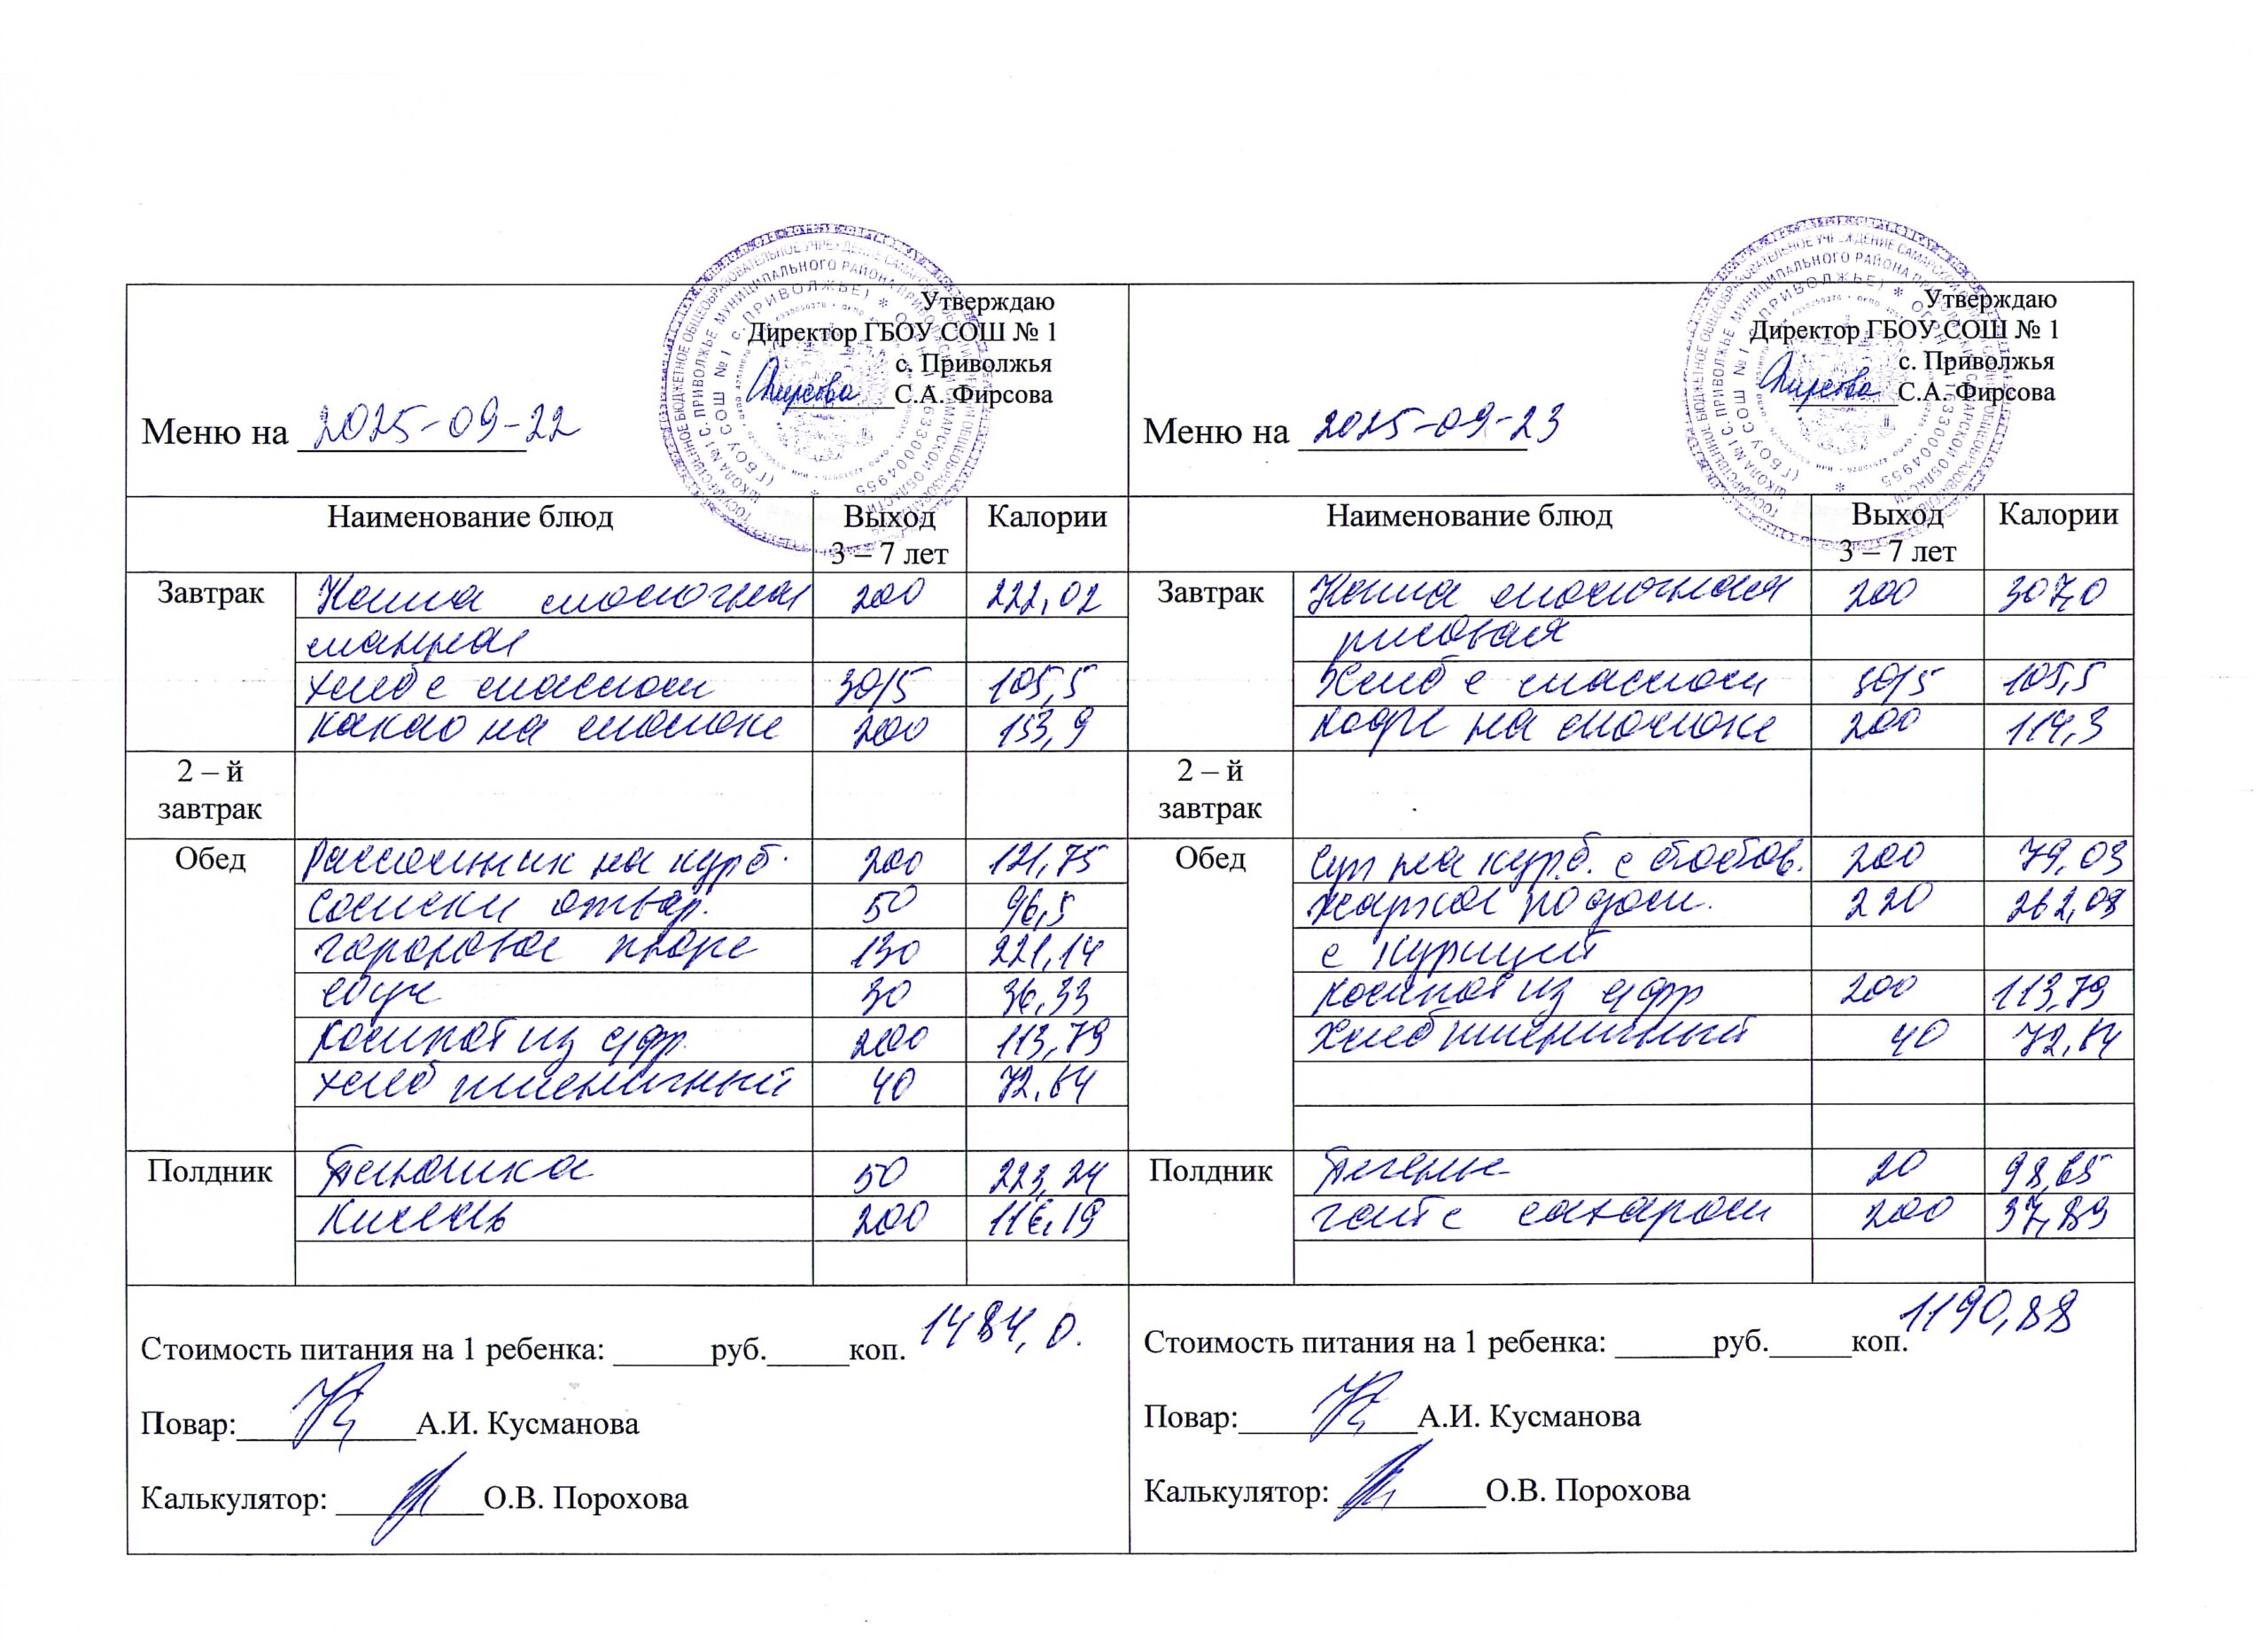 Утверждаю
Директор ГБОУ СОШ № 1
с. Приволжья
С.А. Фирсова
Меню на 2025-09-22
Наименование блюд Выход 3 – 7 лет Калории
Завтрак Каша молочная 200 222,02
манная
хлеб с маслом 30/5 105,5
какао на молоке 200 153,9
2 – й завтрак
Обед Рассольник на кур.б. 200 121,75
сосиски отвар. 50 96,5
гороховое пюре 130 221,14
соус 30 36,33
компот из с/фр. 200 113,79
хлеб пшеничный 40 72,64
Полдник 50 223,24
Кисель 200 116,19
Стоимость питания на 1 ребенка: руб. коп. 1484,0.
Повар: А.И. Кусманова
Калькулятор: О.В. Порохова
Утверждаю
Директор ГБОУ СОШ № 1
с. Приволжья
С.А. Фирсова
Меню на 2025-09-23
Наименование блюд Выход 3 – 7 лет Калории
Завтрак Каша молочная 200 307,0
рисовая
Хлеб с маслом 30/5 105,5
кофе на молоке 200 114,3
2 – й завтрак
Обед Суп на кур.б. с бобов. 200 79,03
жаркое по дом. 220 262,08
с курицей
компот из с/фр 200 113,79
хлеб пшеничный 40 72,64
Полдник Печенье 20 98,65
чай с сахаром 200 37,89
Стоимость питания на 1 ребенка: руб. коп. 1190,88
Повар: А.И. Кусманова
Калькулятор: О.В. Порохова